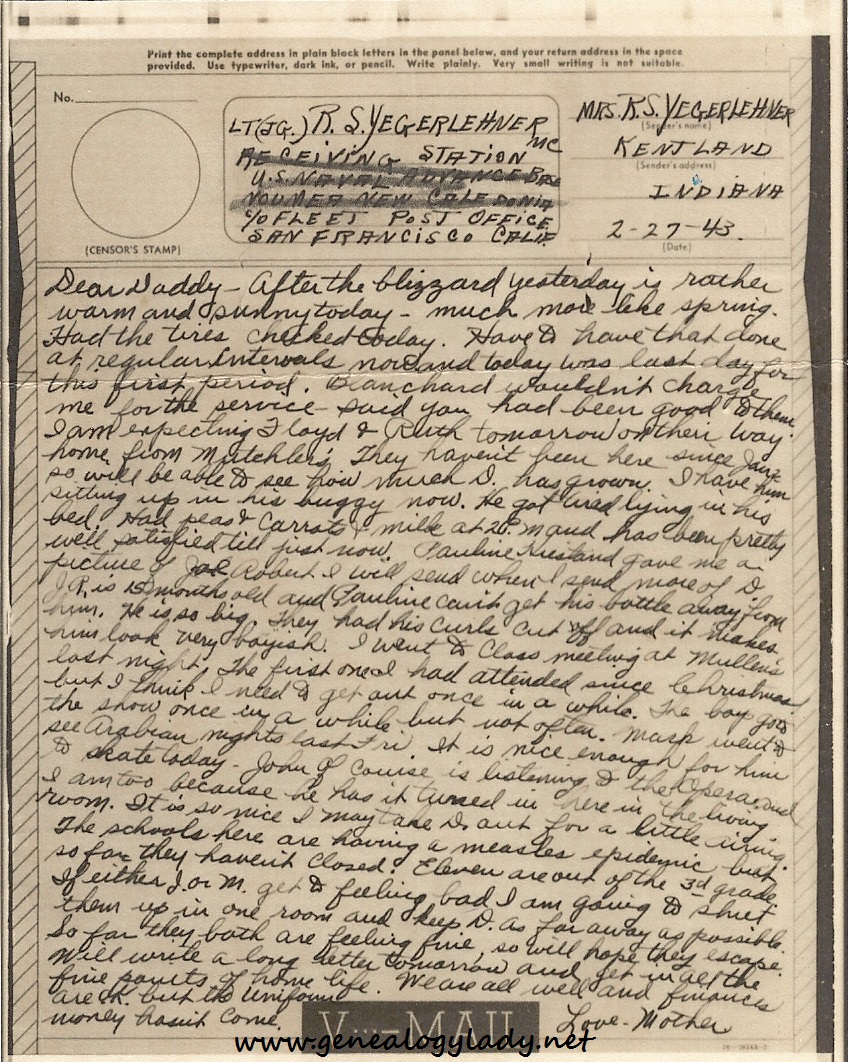 Print the complete address in plain block letters in the panel below, and your return address in the space
provided. Use typewriter, dark ink, or pencil. Write plainly. Very small writing is not suitable.
No.
(CENSOR'S STAMP)
LT(JG.) R. S. YEGERLEHNER
MC
RECEIVING STATION
U.S. NAVAL ADVANCE BASE
NOUMEA NEW CALEDONIA
c/o FLEET POST OFFICE
SAN FRANCISCO CALIF.
MRS. R.S. YEGERLEHNER
(Sender's name)
KENTLAND
(Sender's address)
INDIANA
2-27-43.
(Date)
Dear Daddy - After the blizzard yesterday is rather
warm and sunny today - much more like spring.
Had the tires checked today. Have to have that done
at regular intervals now and today was last day for
this first period. Blanchard wouldn't charge
me for the service - said you had been good to them
I am expecting Floyd & Ruth tomorrow on their way
home from Mutchler's. They haven't been here since Jan 2
so will be able to see how much D. has grown. I have him
sitting up in his buggy now. He got tired lying in his
bed. Had peas & carrots & milk at 2 P.M and has been pretty
well satisfied till just now. Pauline gave me a
picture of Robert. I will send when I send more of D.
J.R. is 15 months old and Pauline can't get his bottle away from
him. He is so big. They had his curls cut off and it makes
him look very boyish. I went to class meeting at Mullen's
last night. The first one I had attended since Christmas
but I think I need to get out once in a while. The boys go to
the show once in a while but not often. Mark went to
see Arabian nights last Fri. It is nice enough for him
to skate today - John of course is listening to the Opera, and
I am too because he has it turned in here in the living
room. It is so nice I may take D. out for a little airing.
The schools here are having a measles epidemic but
so far they haven't closed. Eleven are out of the 3rd grade.
If either J. or M. get to feeling bad I am going to shut
them up in one room and keep D. as far away as possible.
So far they both are feeling fine, so will hope they escape.
Will write a long letter tomorrow and get in all the
fine points of home life. We are all well and finances
are ok. but the uniform
money hasn't come.
Love - Mother
V···—MAIL
www.genealogylady.net